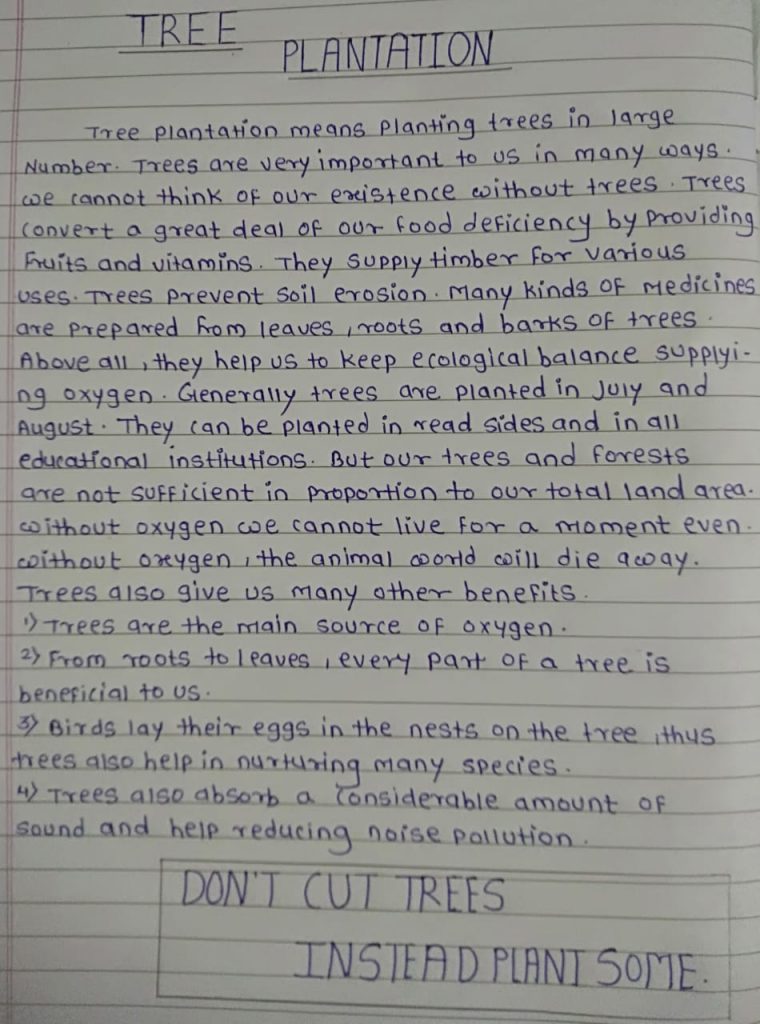 TREE
PLANTATION
Tree plantation means planting trees in large
Number. Trees are very important to us in many ways.
we cannot think of our existence without trees. Trees
convert a great deal of our food deficiency by providing
fruits and vitamins. They supply timber for various
uses. Trees prevent soil erosion. Many kinds of medicines
are prepared from leaves, roots and barks of trees.
Above all, they help us to keep ecological balance supplyi-
ng oxygen. Generally trees are planted in July and
August. They can be planted in read sides and in all
educational institutions. But our trees and forests
are not sufficient in proportion to our total land area.
without oxygen we cannot live for a moment even.
without oxeygen, the animal world will die away.
Trees also give us many other benefits.
1) Trees are the main source of oxygen.
2) From roots to leaves, every part of a tree is
beneficial to us.
3) Birds lay their eggs in the nests on the tree, thus
trees also help in nurturing many species.
4) Trees also absorb a considerable amount of
sound and help reducing noise pollution.
DON'T CUT TREES
INSTEAD PLANT SOME.